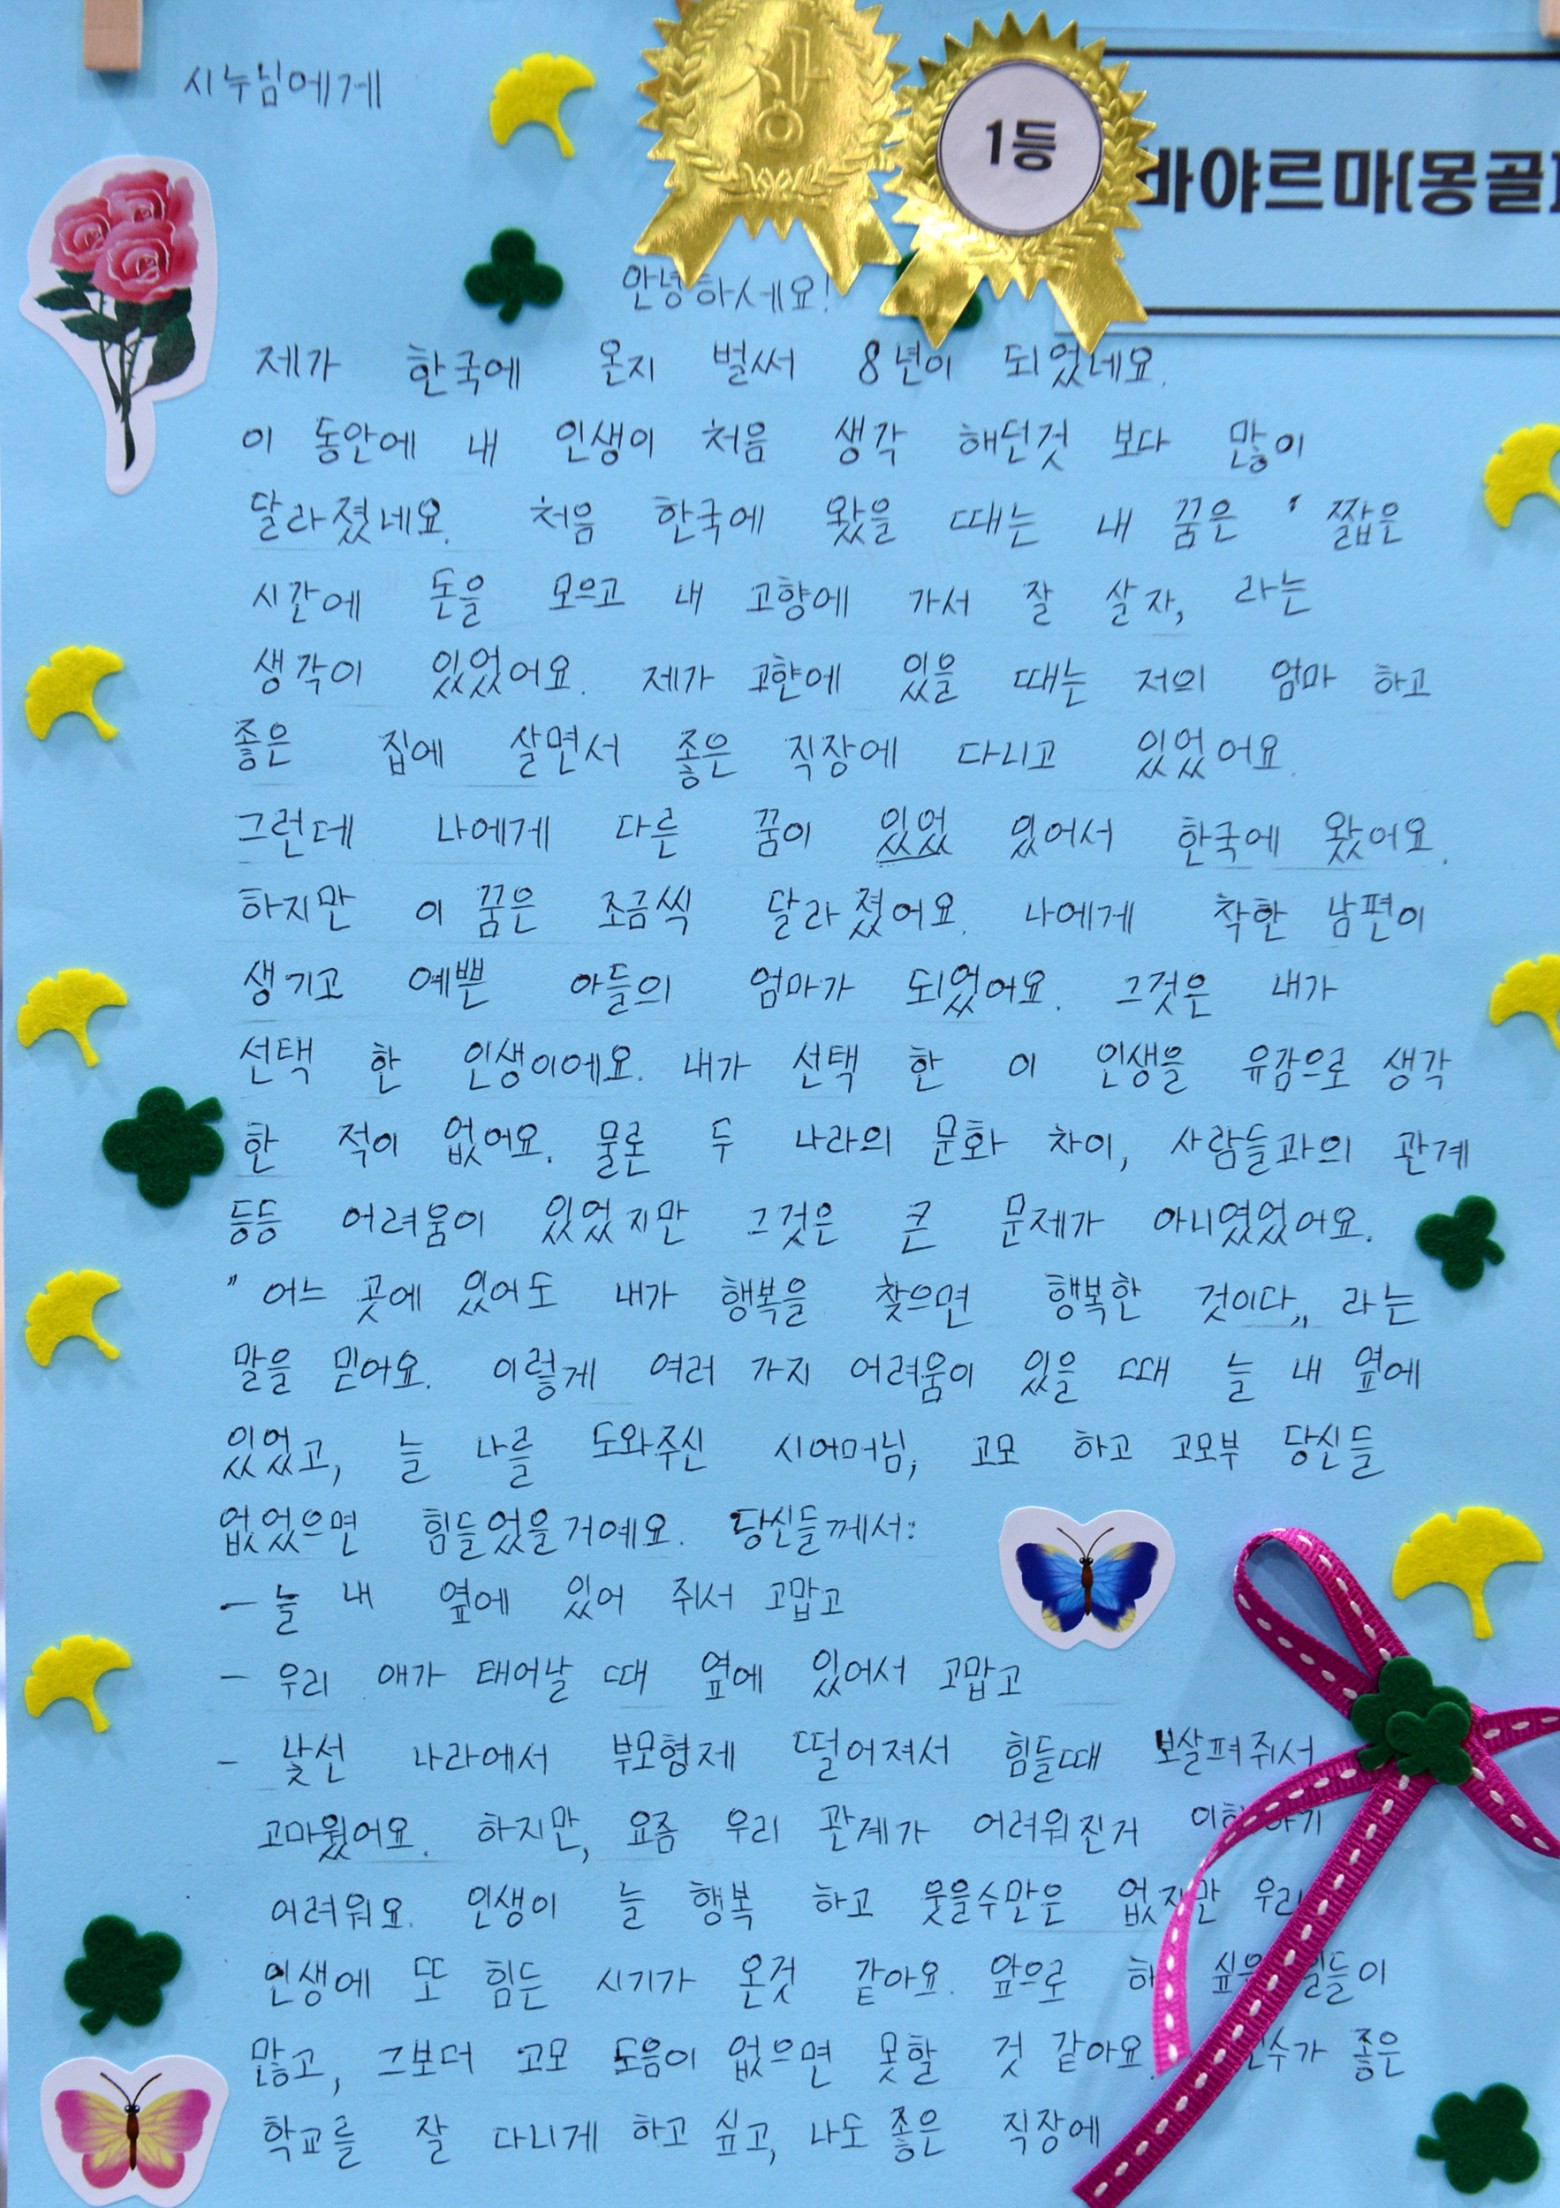 시누님에게
상
1등
바야르마(몽골)
안녕하세요!
제가 한국에 온지 벌써 8년이 되었네요.
이 동안에 내 인생이 처음 생각 해던것 보다 많이
달라졌네요. 처음 한국에 왔을 때는 내 꿈은 " 짧은
시간에 돈을 모으고 내 고향에 가서 잘 살자, 라는
생각이 있었어요. 제가 고햔에 있을 때는 저의 엄마 하고
좋은 집에 살면서 좋은 직장에 다니고 있었어요.
그런데 나에게 다른 꿈이 있었 있어서 한국에 왔어요.
하지만 이 꿈은 조금씩 달라졌어요. 나에게 착한 남편이
생기고 예쁜 아들의 엄마가 되었어요. 그것은 내가
선택 한 인생이에요. 내가 선택 한 이 인생을 유감으로 생각
한 적이 없어요. 물론 두 나라의 문화 차이, 사람들과의 관계
등등 어려움이 있었지만 그것은 큰 문제가 아니였었어요.
" 어느 곳에 있어도 내가 행복을 찾으면 행복한 것이다„ 라는
말을 믿어요. 이렇게 여러 가지 어려움이 있을 때 늘 내 옆에
있었고, 늘 나를 도와주신 시어머님, 고모 하고 고모부 당신들
없었으면 힘들었을거예요. 당신들께서:
– 늘 내 옆에 있어 줘서 고맙고
– 우리 애가 태어날 때 옆에 있어서 고맙고
– 낯선 나라에서 부모형제 떨어져서 힘들때 보살펴줘서
고마웠어요. 하지만, 요즘 우리 관계가 어려워진거
어려워요. 인생이 늘 행복 하고 웃을수만은 없지만 우리
인생에 또 힘든 시기가 온것 같아요. 앞으로 싶은 일들이
많고, 그보더 고모 도음이 없으면 못할 것 같아요. 좋은
학교를 잘 다니게 하고 싶고, 나도 좋은 직장에